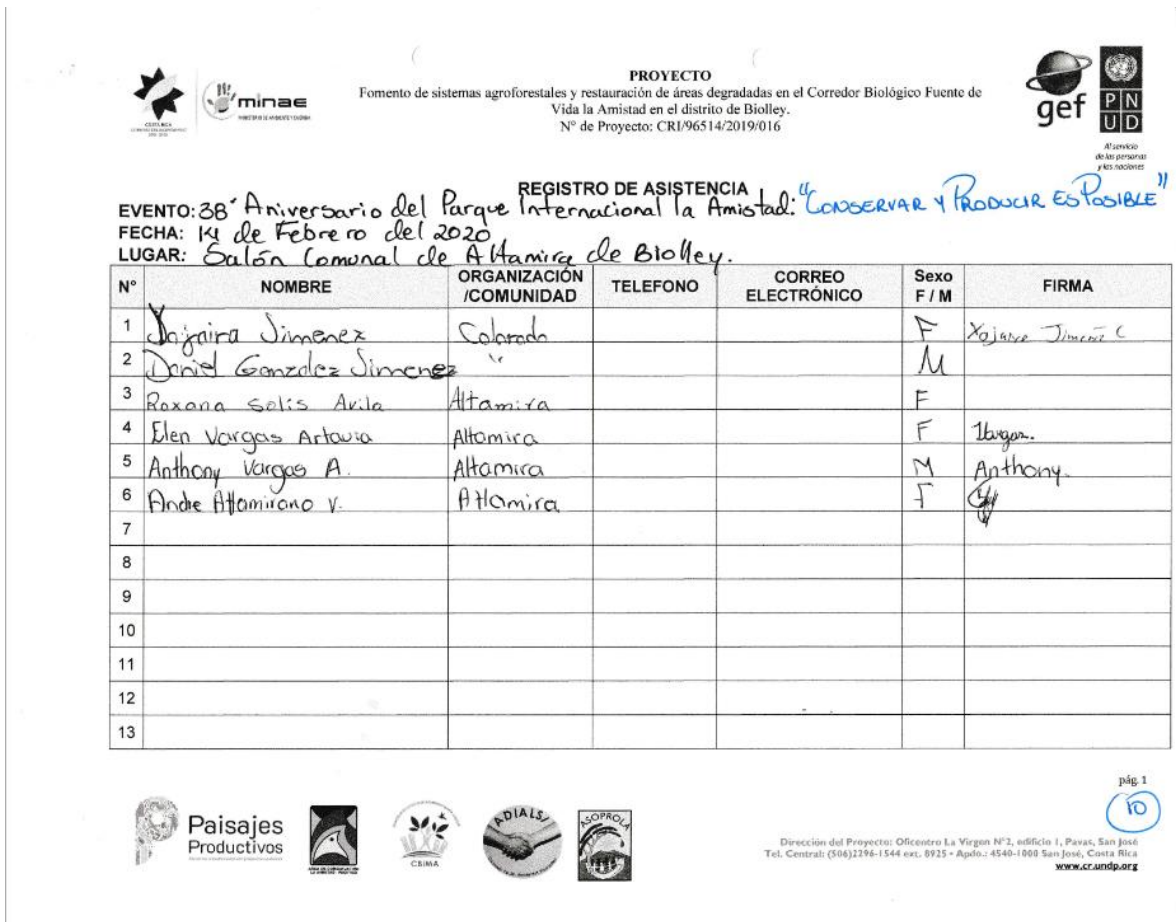 PROYECTO
Fomento de sistemas agroforestales y restauración de áreas degradadas en el Corredor Biológico Fuente de
Vida la Amistad en el distrito de Biolley.
N° de Proyecto: CRI/96514/2019/016
COSTA RICA
minae
MINISTERIO DE AMBIENTE Y ENERGÍA
gef
PN
UD
Al servicio
de las personas
y las naciones
REGISTRO DE ASISTENCIA
EVENTO: 38° Aniversario del Parque Internacional la Amistad: "CONSERVAR Y PRODUCIR ES POSIBLE"
FECHA: 14 de Febrero del 2020
LUGAR: Salón Comunal de Altamira de Biolley.
N° NOMBRE ORGANIZACIÓN /COMUNIDAD TELEFONO CORREO ELECTRÓNICO Sexo F / M FIRMA
1 Jimenez Colorado F
2 Daniel Gonzalez Jimenez " M
3 Roxana Solis Avila Altamira F
4 Elen Vargas Artavia Altamira F
5 Anthony Vargas A. Altamira M Anthony.
6 Andre Altamirano V. Altamira F
7
8
9
10
11
12
13
pág. 1
10
Paisajes
Productivos
CBIMA
ADIALS
ASOPROLA
Dirección del Proyecto: Oficentro La Virgen N°2, edificio 1, Pavas, San José
Tel. Central: (506)2296-1544 ext. 8925 • Apdo.: 4540-1000 San José, Costa Rica
www.cr.undp.org